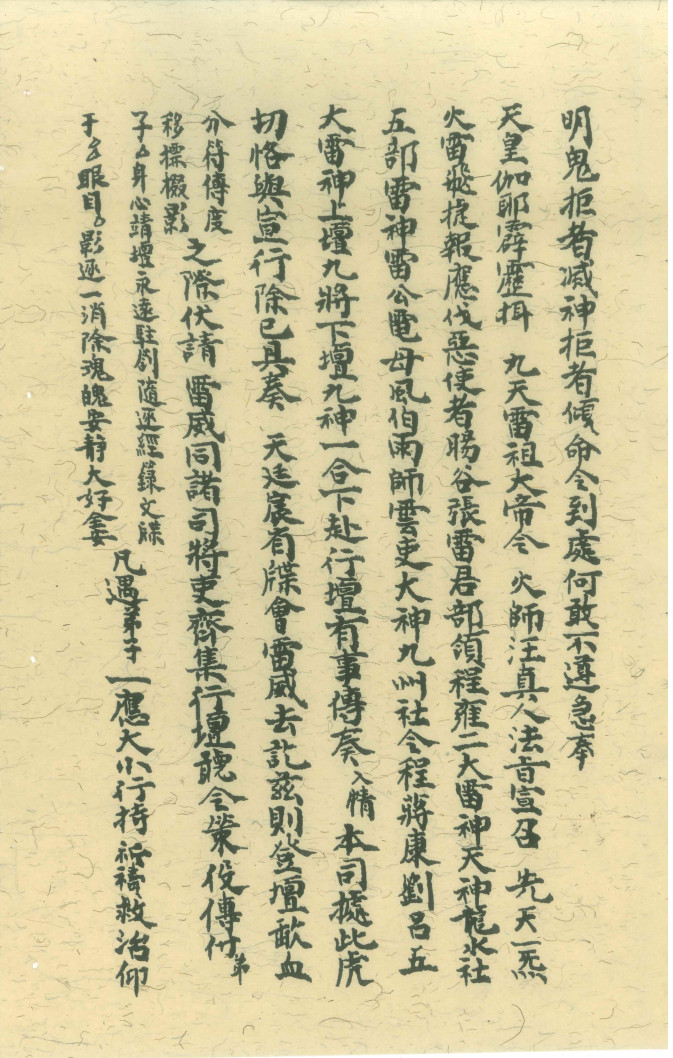 明鬼拒者滅神拒者傾命令到處何敢不遵急奉
天皇伽耶霹靂揖　九天雷祖大帝令　火師汪真人法旨宣召　先天一炁
火雷飛捷報應伐惡使者暘谷張雷君部領程雍二大雷神天神龍水社
五部雷神雷公電母風伯雨師雲吏大神九州社令程蔣康劉呂五
大雷神上壇九將下壇九神一合下赴行壇有事傳奏入情本司據此虎
切恪與宣行除已具奏　天廷宸有牒會雷威去訖茲則登壇歃血
分符傳度
移標攝影
之際伏請　雷威同諸司將吏齊集行壇聽令策役傳付弟
子厶身心靖壇永遠駐劄隨逐經籙文牒
于厶眼目厶影逐一消除魂魄安靜大好
凡遇弟子一應大小行持祈禱救治仰